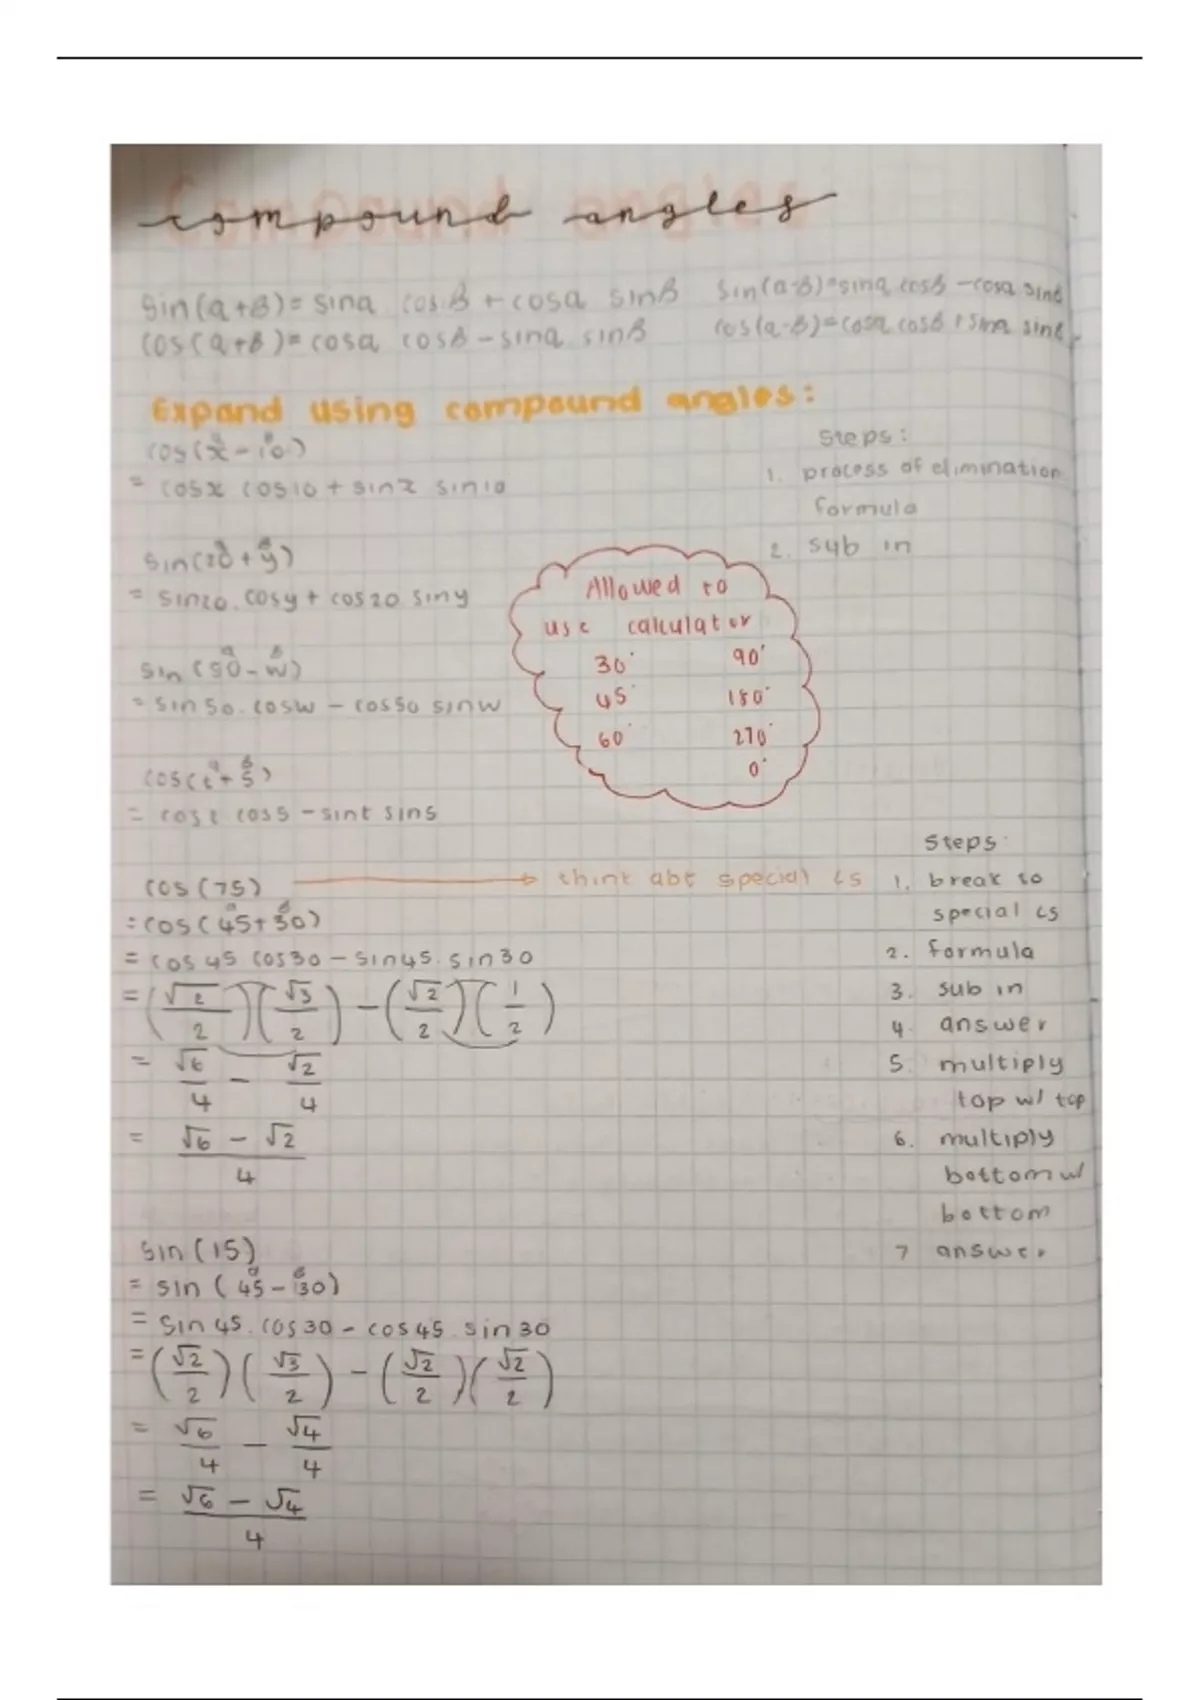 compound angles
sin(a+B)= sina. cosB + cosa sinB sin(a-B)=sina cosB - cosa sinB
cos(a+B)= cosa cosB - sina sinB cos(a-B)= cosa cosB + sina sinB
Expand using compound angles:
cos(x - 10)
= cosx cos10 + sinx sin10
Steps:
1. process of elimination
formula
2. sub in
sin(20 + y)
= sin20. cosy + cos20 siny
Allowed to
use calculator
30° 90°
45° 180°
60° 270°
0°
sin (50 - w)
= sin 50. cosw - cos50 sinw
cos(t + 5)
= cost cos5 - sint sin5
cos (75) → think abt special ∠s
= cos (45 + 30)
= cos 45 cos30 - sin45. sin30
= (√2/2)(√3/2) - (√2/2)(1/2)
= √6/4 - √2/4
= (√6 - √2)/4
Steps:
1. break to
special ∠s
2. formula
3. sub in
4. answer
5. multiply
top w/ top
6. multiply
bottom w/
bottom
7 answer
sin (15)
= sin (45 - 30)
= Sin 45. cos 30 - cos 45. sin 30
= (√2/2)(√3/2) - (√2/2)(√2/2)
= √6/4 - √4/4
= (√6 - √4)/4